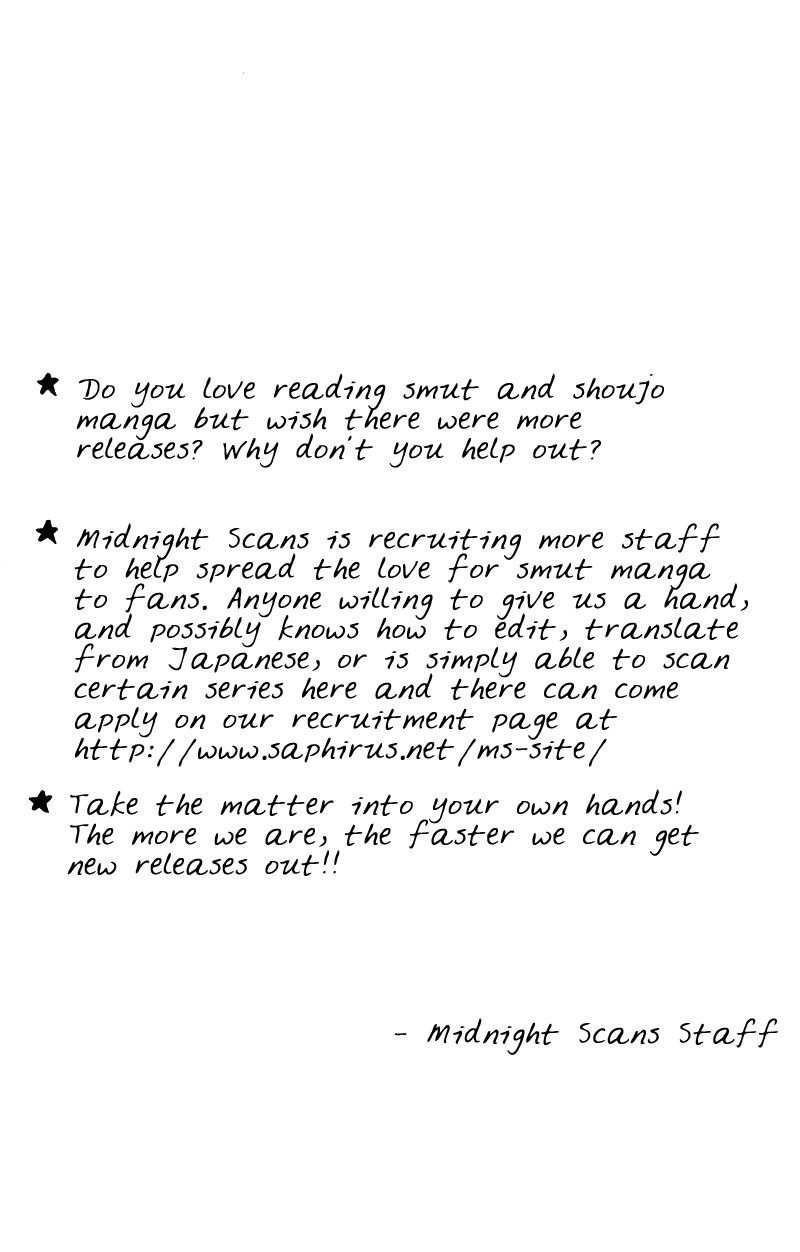 ★ Do you love reading smut and shoujo
manga but wish there were more
releases? Why don't you help out?
★ Midnight Scans is recruiting more staff
to help spread the love for smut manga
to fans. Anyone willing to give us a hand,
and possibly knows how to edit, translate
from Japanese, or is simply able to scan
certain series here and there can come
apply on our recruitment page at
http://www.saphirus.net/ms-site/
★ Take the matter into your own hands!
The more we are, the faster we can get
new releases out!!
- Midnight Scans Staff